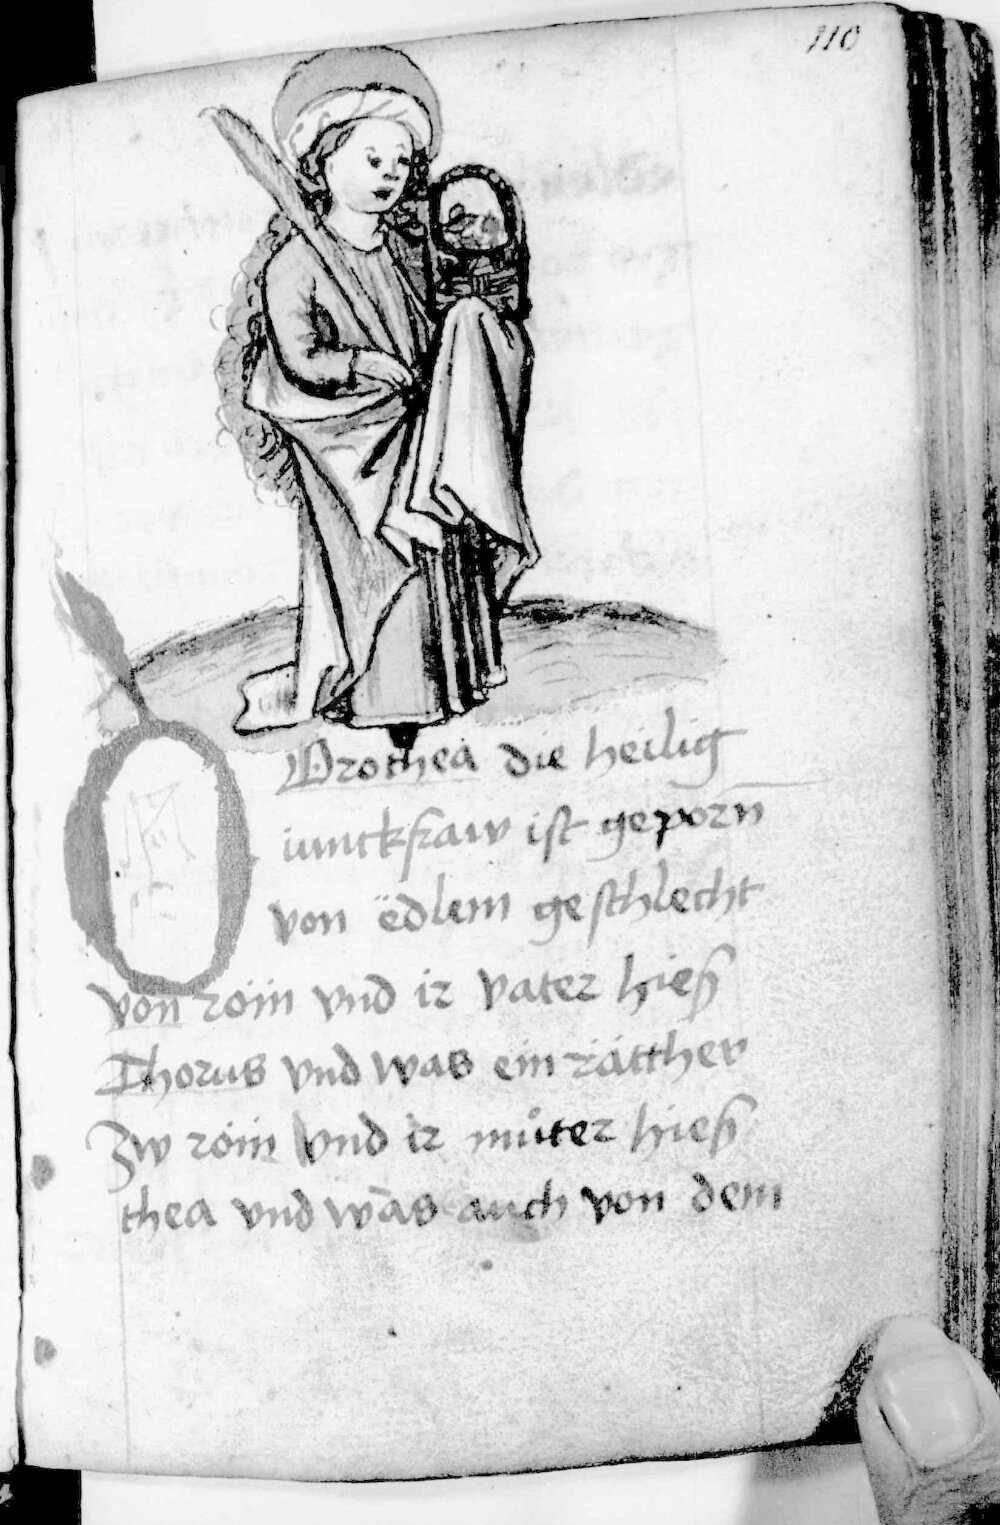 110
Drothea die heilig
iunckfraw ist geporn̄
von ëdlem geschlecht
von röm vnd ir vater hieß
Thorus vnd was ein rätther
Zw röm vnd ir můter hieß
thea vnd wās auch von dem